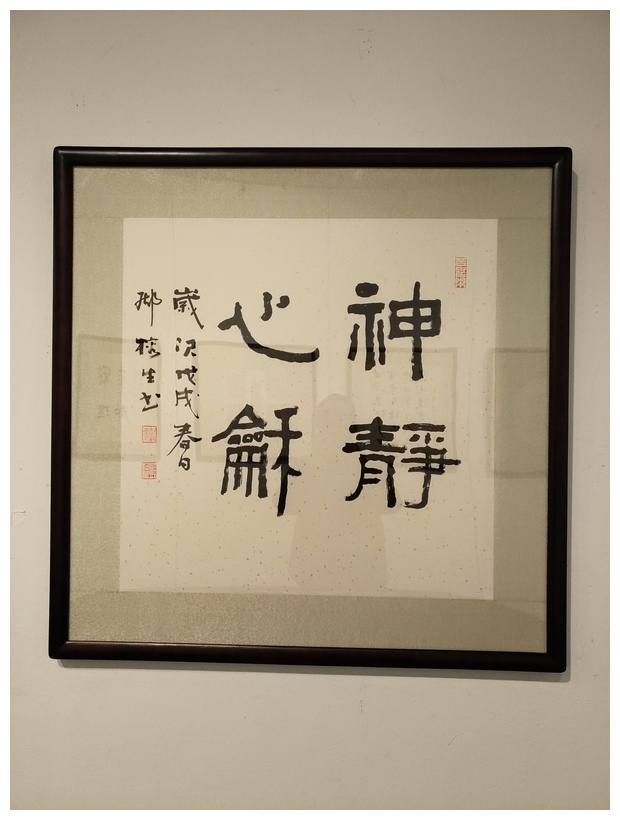 神靜
心龢
歲次戊戌春日
生书